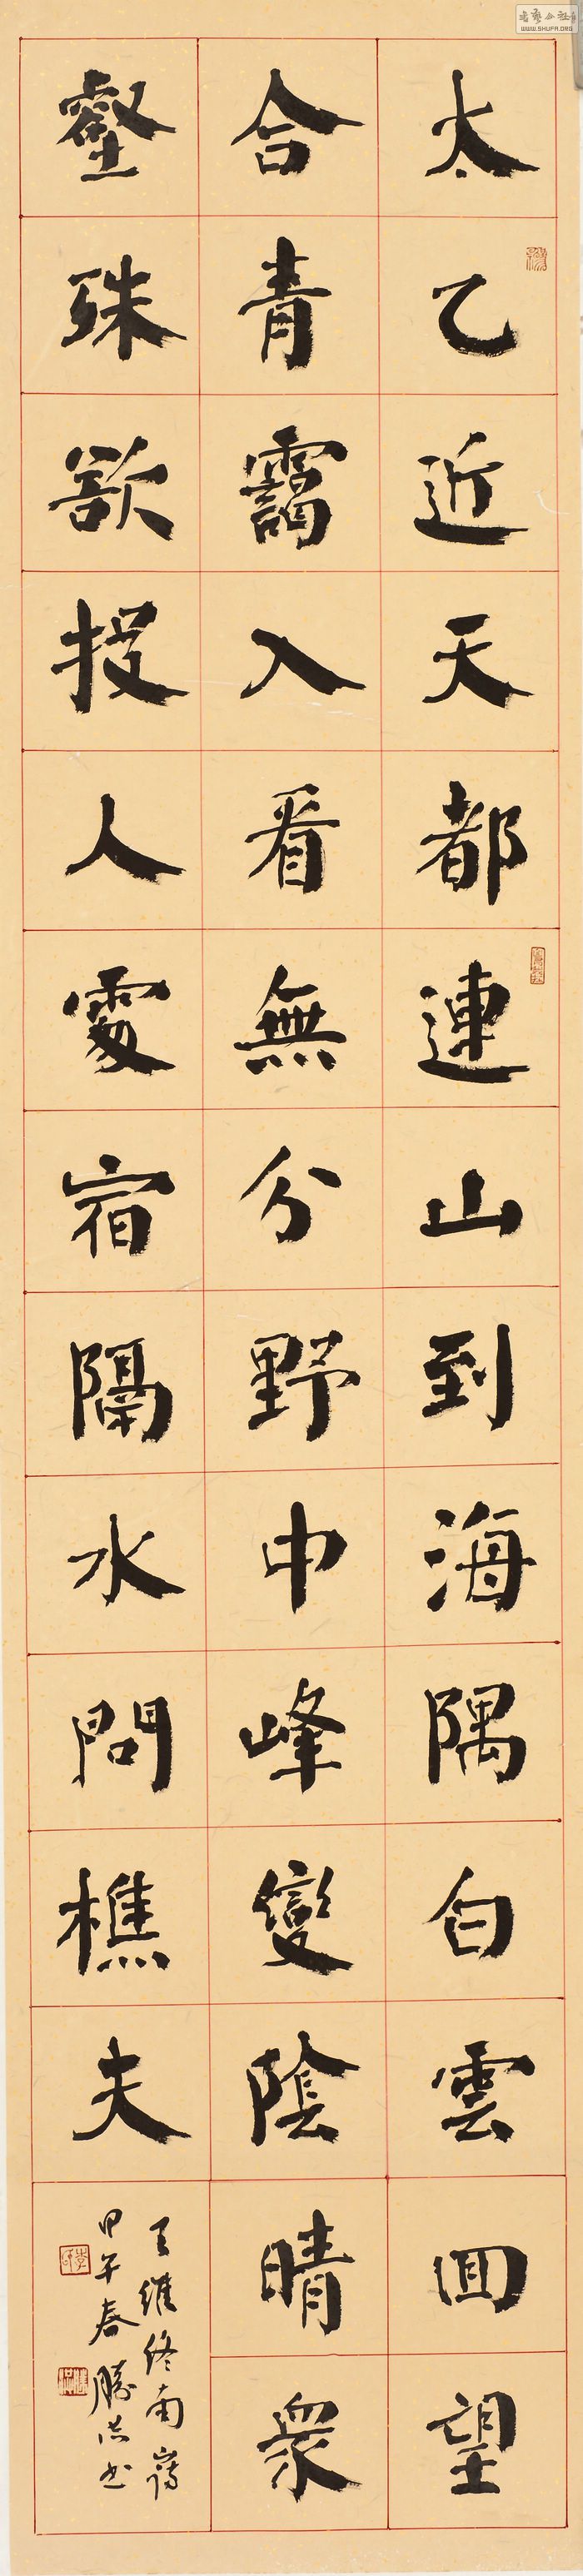 太乙近天都連山到海隅白雲回望
合青靄入看無分野中峰變陰晴衆
壑殊欲投人處宿隔水問樵夫
王維終南
甲午春勝志書
WWW.SHUFA.ORG